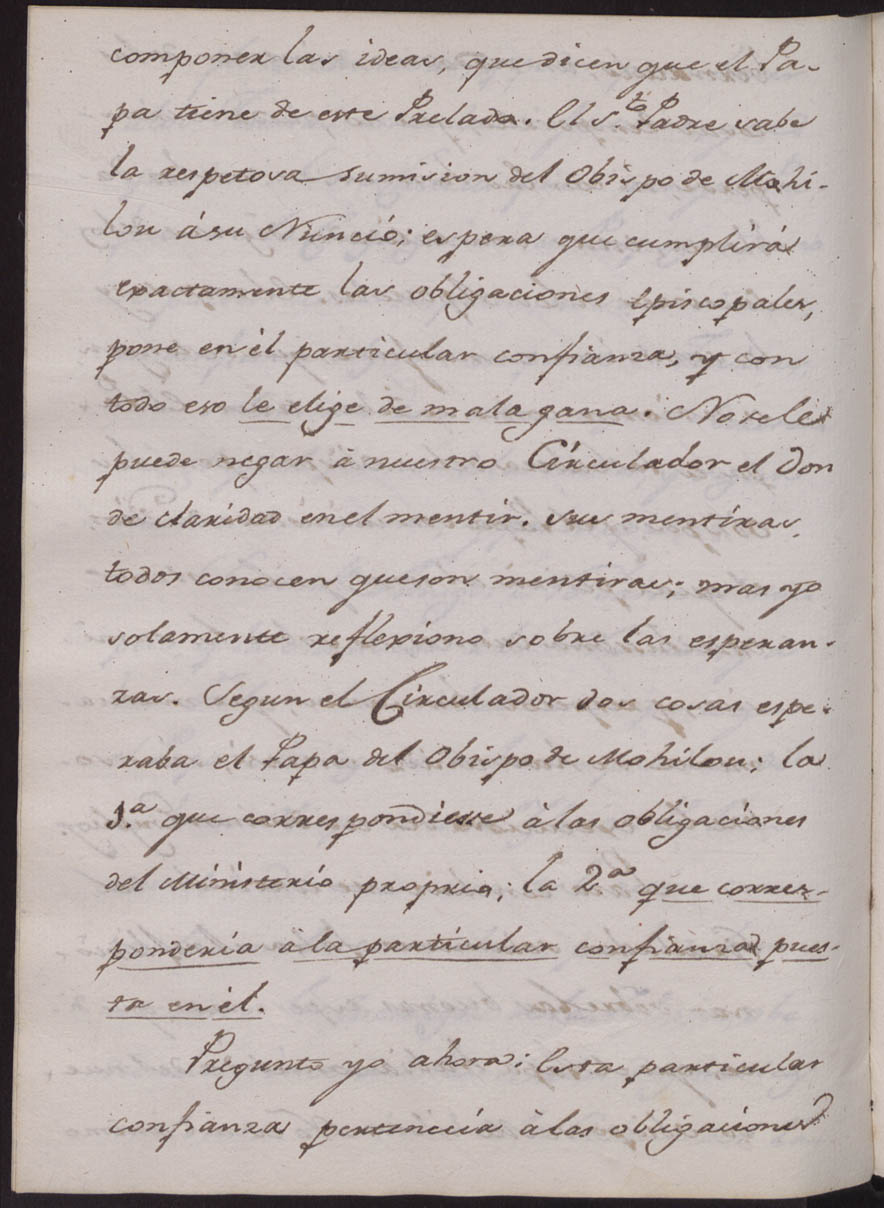 componer las ideas, que dicen que el Pa-
pa tiene de este Prelado. El S.to Padre sabe
la respetosa sumision del Obispo de Mohi-
lou á su Nuncio; espera que cumplirá
exactamente las obligaciones Episcopales,
pone en él particular confianza, y con
todo eso le elige de mala gana. No se le
puede negar à nuestro Circulador el don
de claridad en el mentir. sus mentiras,
todos conocen que son mentiras; mas yo
solamente reflexiono sobre las esperan-
zas. Segun el Circulador dos cosas espe-
raba el Papa del Obispo de Mohilou; la
1.a que correspondiese à las obligaciones
del Ministerio proprio; la 2.a que corres-
ponderia à la particular confianza pues-
ta en él.
Pregunto yo ahora: Esta particular
confianza pertenecia à las obligaciones